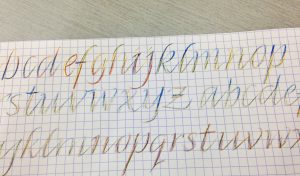 bcdefghijklmnop
stuvwxyz abcdef
jklmnopqrstuvwx